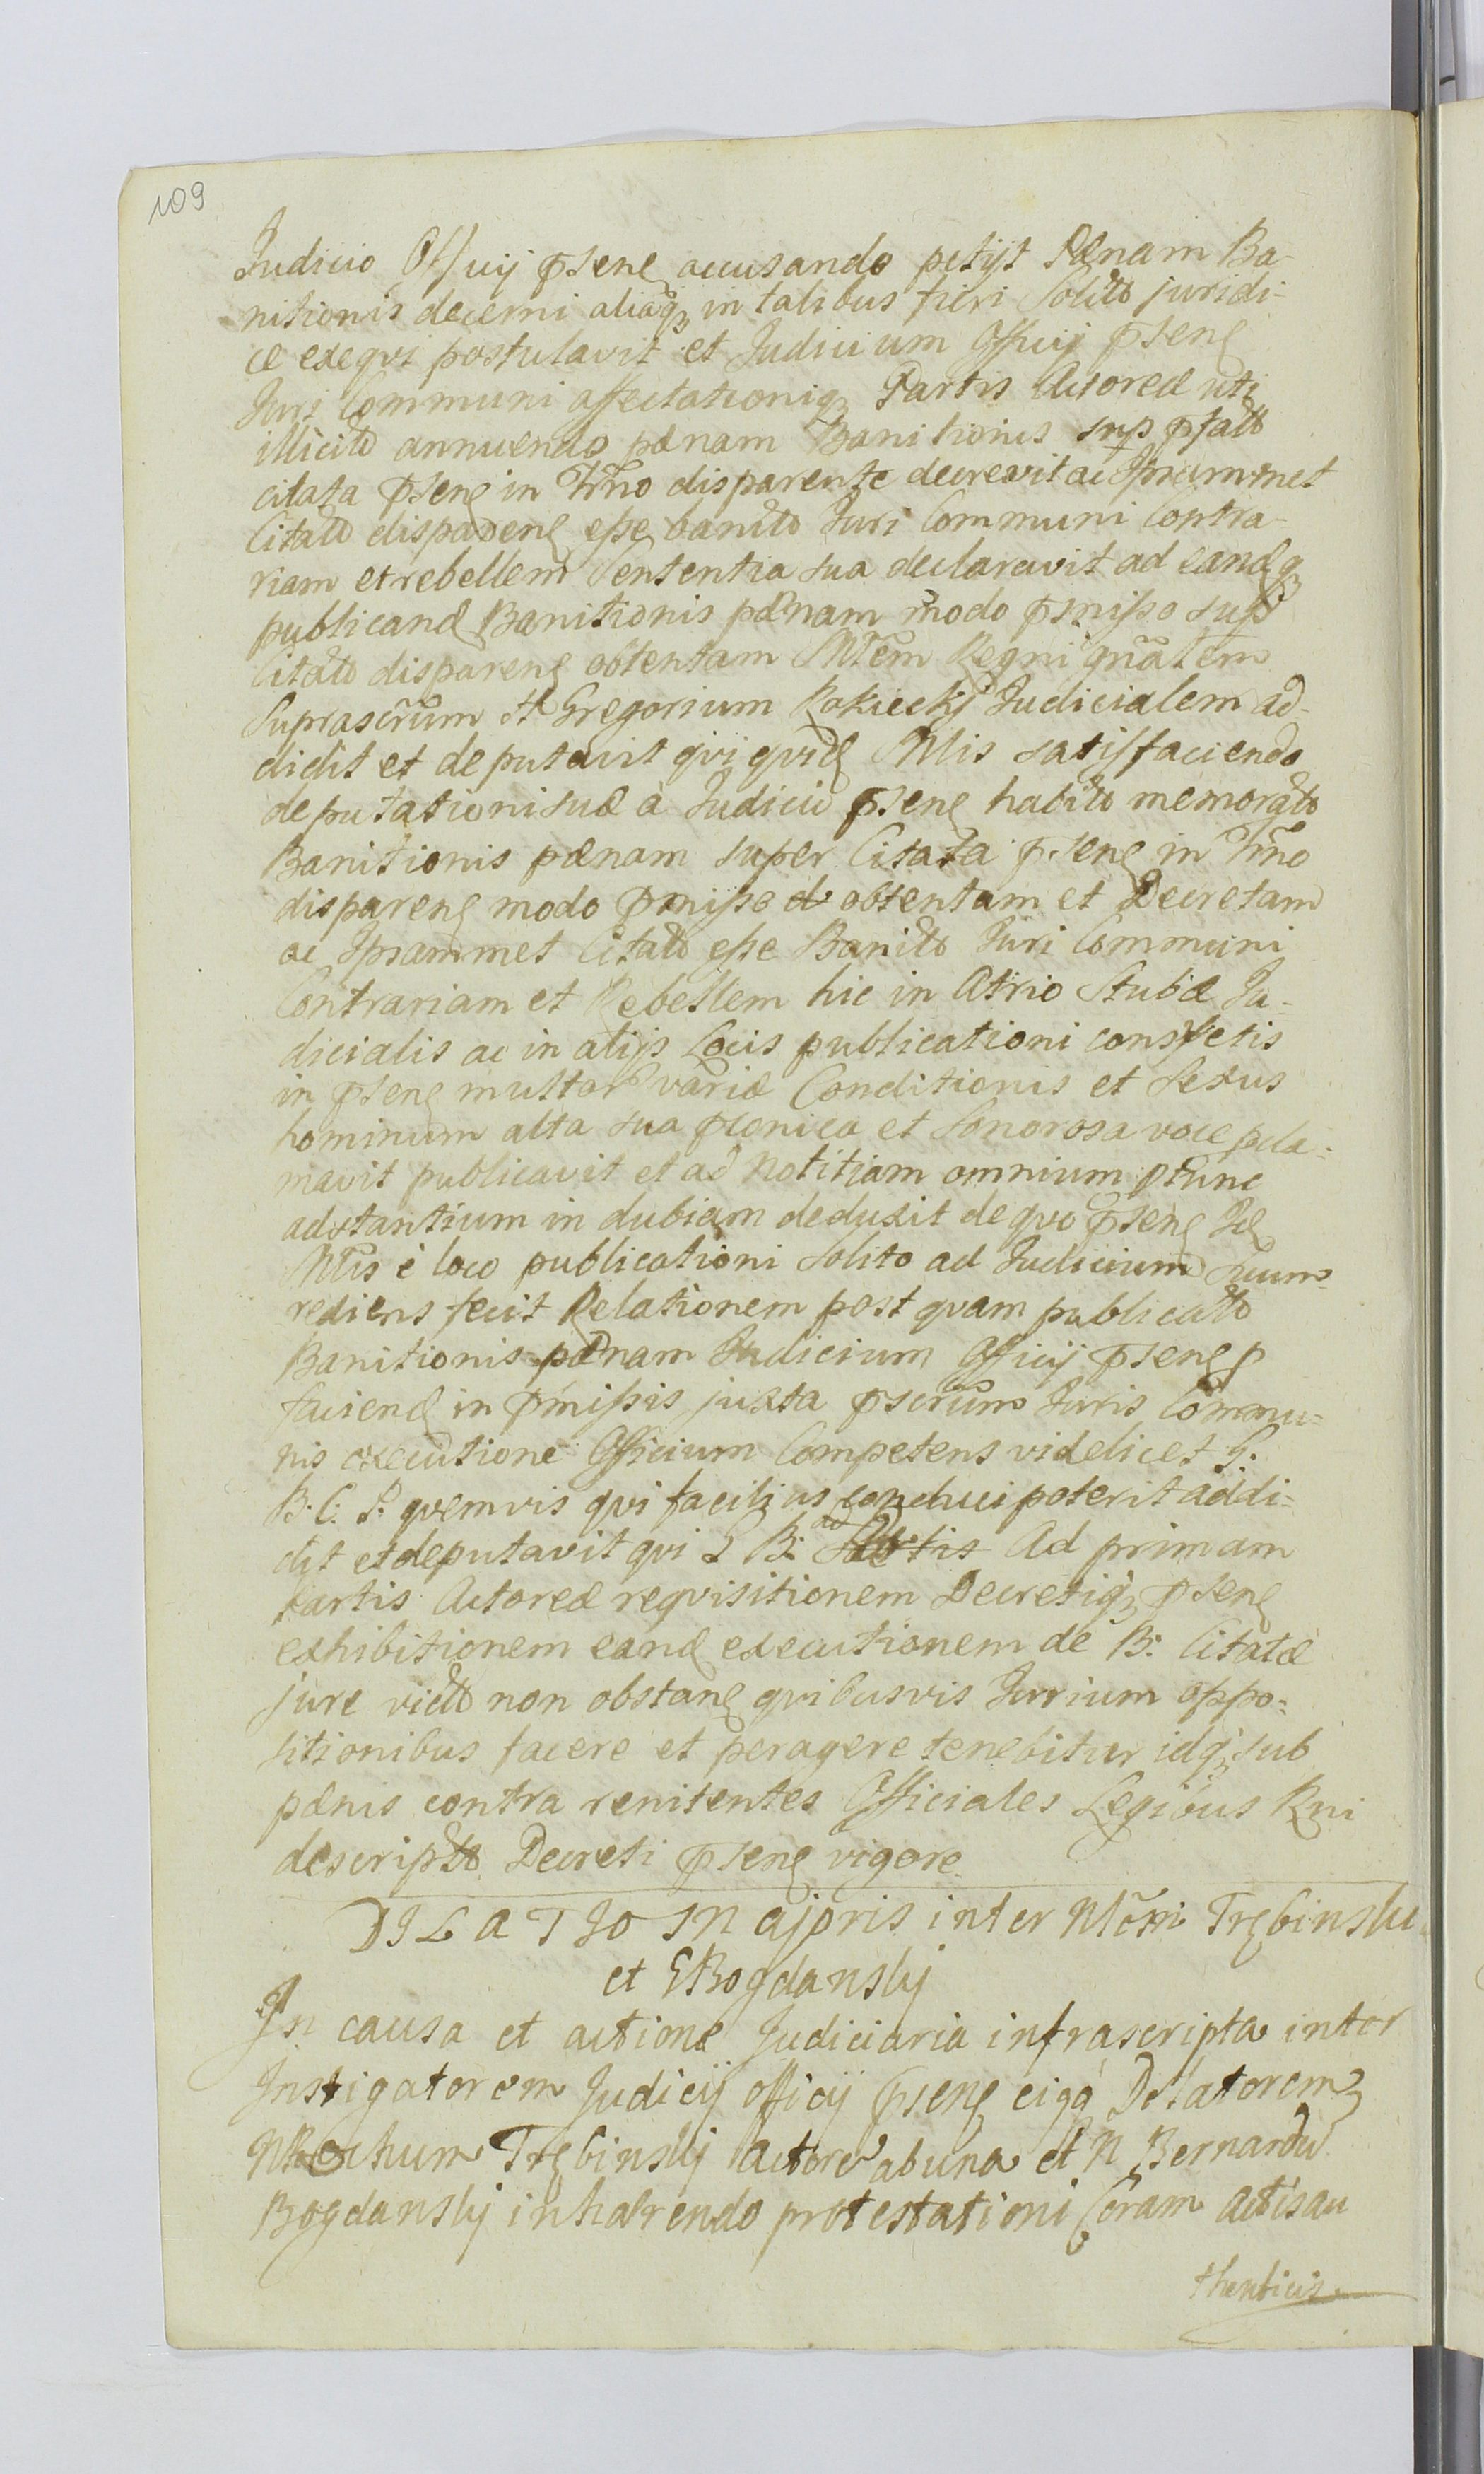 109
Judicio Officij pñsenꝭ accusando petijt Pænam Ba-
nitionis decerni aliaqꝫ in talibus fieri solito juridi-
ce exeqvi postulavit et Judicium Officij pñsenꝭ
Juri Communi affectationiqꝫ Partis Actoreæ uti
illicito annuendo pænam Banitionis sup pfato
citata pñsenꝭ in Trno disparente decrevit ac Ipsammet
Citato disparenꝭ esse banito Juri Communi Contra-
riam et rebellem Sententia sua declaravit ad eandꝭqꝫ
publicandꝭ Banitionis pænam modo pmisso sup
Citato disparenꝭ obtentam Mtem Regni gnalem
Suprascrum H Gregorium Rokieckj Judicialem ad-
didit et deputavit qvi qvidꝭ Mtis satisfaciendo
deputationi suæ à Judicio pñsenꝭ habito memorato
Banitionis pænam super Citata pñsenꝭ in Trno
disparenꝭ modo pmisso obtentam et Decretam
ac Ipsammet Citato esse Banito Juri Communi
Contrariam et Rebellem hic in Atrio Stubæ Ju-
dicialis ac in alijs Locis publicationi consvetis
in pñsenꝭ multor variæ Conditionis et Sexus
hominum alta sua pconica et Sonorosa voce pcla-
mavit publicavit et ad Notitiam omnium ptunc
adstantium in dubiam deduxit de qvo pñsenꝭ Idꝭ
Mtis è loco publicationi solito ad Judicium suum
rediens fecit Relationem post qvam publicato
Banitionis pænam Judicium Officij pñsenꝭ p
faciendꝭ in pmissis juxta pscrum Juris Commu-
nis executione Officium Competens videlicet G.
B. C. P. qvemvis qvi facilius conduci poterit addi-
dit et deputavit qvi ad Ad primam
Partis Actoreæ reqvisitionem Decretiqꝫ pñsenꝭ
exhibitionem eandꝭ executionem de B: Citatæ
jure victo non obstanꝭ qvibusvis Jurium oppo-
sitionibus facere et peragere tenebitur idqꝫ sub
pænis contra renitentes Officiales Legibus Rni
descripto Decreti pñsenꝭ vigore
DILATIO Majoris inter Trębinski
et GBogdanskj
In causa et actione Judiciaria infrascripta inter
Instigatorem Judicij officij pñsenꝭ eiqꝫ Delatorem
Trębinskj Actore ab una et N Bernardu
Bogdanskj inhærendo protestationi Coram actis au
thenticis